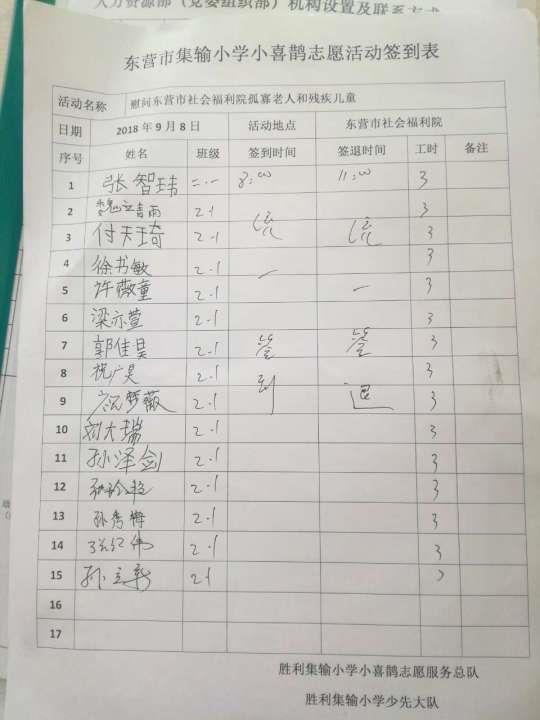 人力资源部（党委组织部）机构设置及联系方式
东营市集输小学小喜鹊志愿活动签到表
活动名称 慰问东营市社会福利院孤寡老人和残疾儿童
日期 2018 年 9 月 8 日 活动地点 东营市社会福利院
序号 姓名 班级 签到时间 签退时间 工时 备注
1 张智玮 二.一 8:00 11:00 3
2 青雨 2.1 统 3
3 付天琦 2.1 统 3
4 徐书敏 2.1 一 3
5 许薇童 2.1 一 3
6 梁亦萱 2.1 3
7 郭佳昊 2.1 签 签 3
8 祝广昊 2.1 到 3
9 梦薇 2.1 退 3
10 刘大瑞 2.1 3
11 孙泽剑 2.1 3
12 2.1 3
13 孙秀梅 2.1 3
14 张红伟 2.1 3
15 孙立新 2.1
16
17
胜利集输小学小喜鹊志愿服务总队
胜利集输小学少先大队